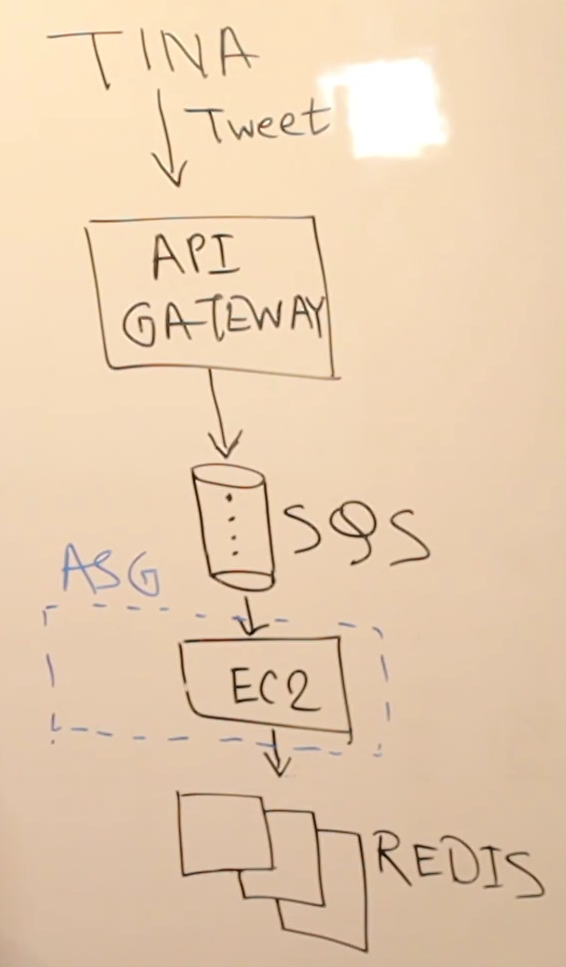 TINA
Tweet
API
GATEWAY
SQS
ASG
EC2
REDIS